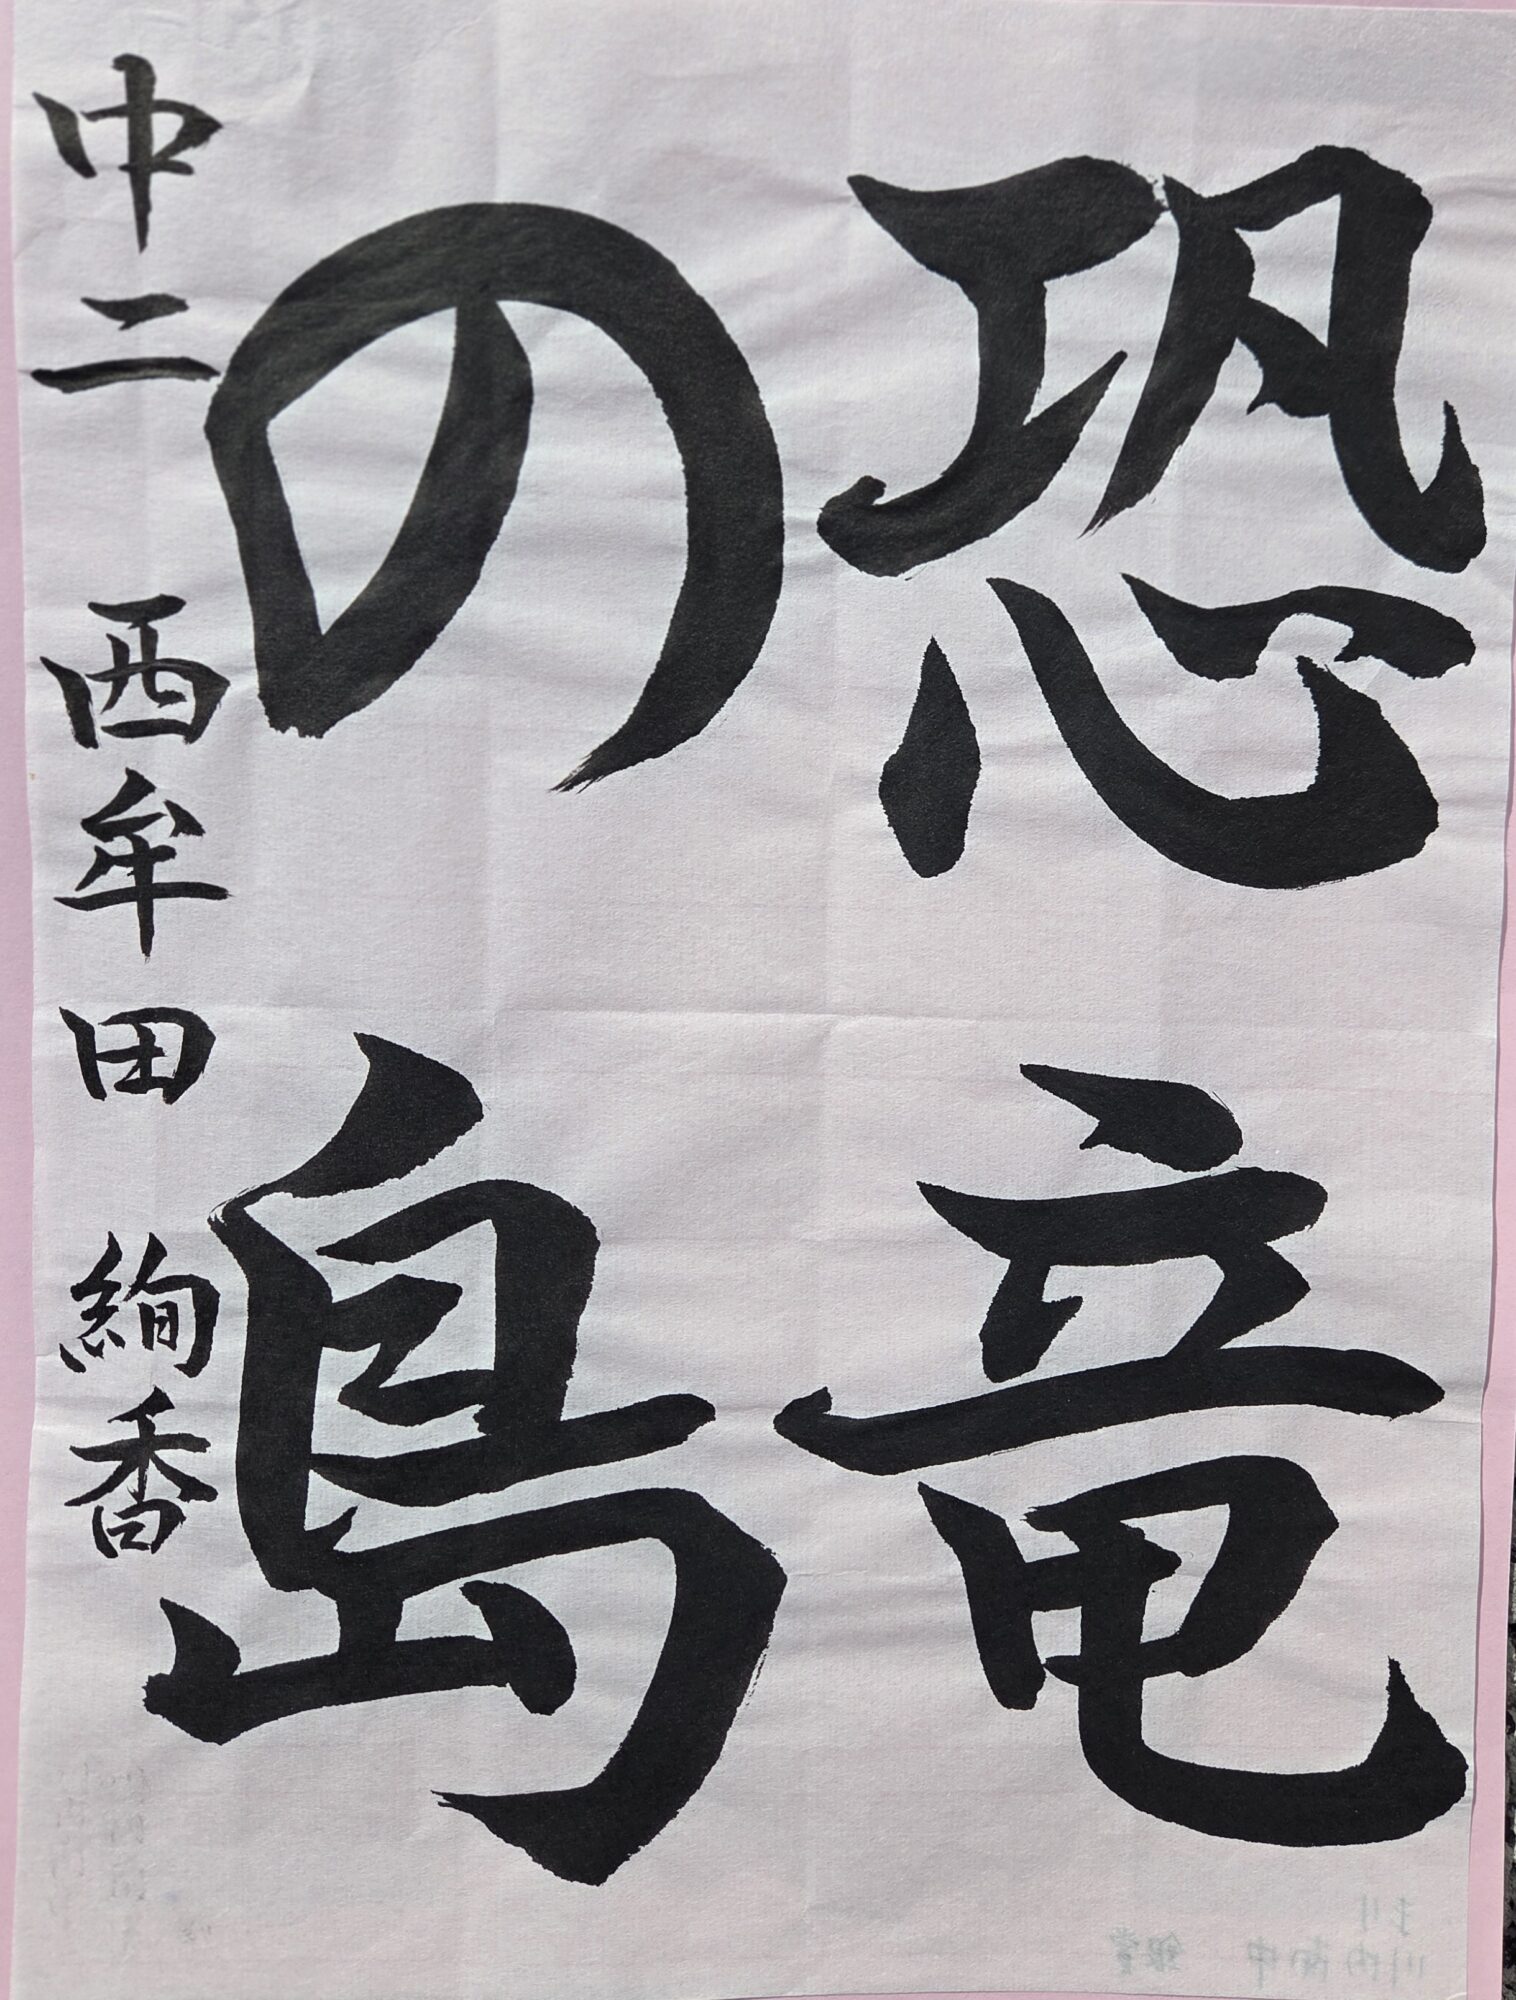 恐竜
の島
中二 西牟田 絢香